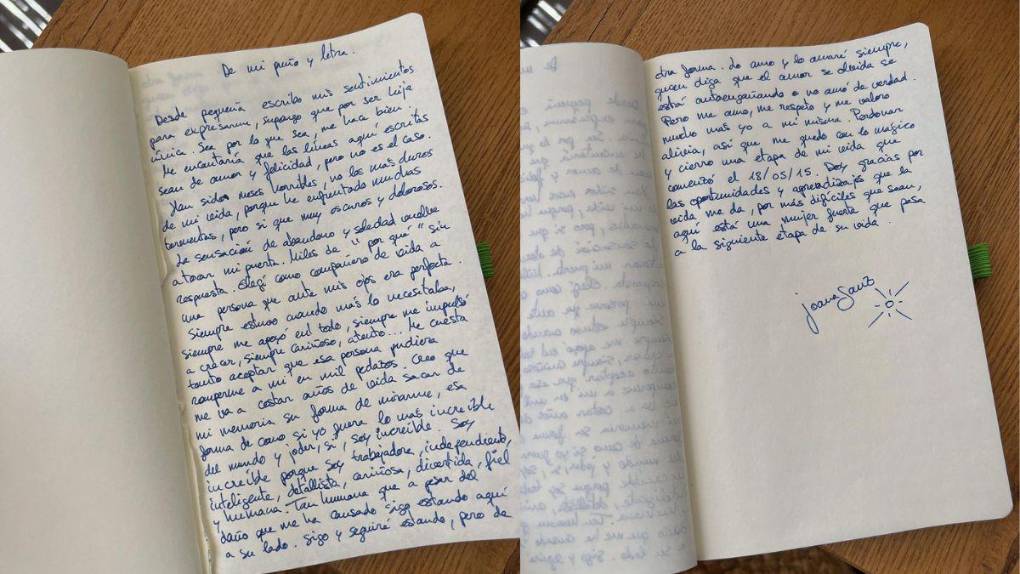 De mi puño y letra.
Desde pequeña escribo mis sentimientos
para expresarme, supongo que por ser hija
única. Sea por lo que sea, me hace bien.
Me encantaría que las líneas aquí escritas
sean de amor y felicidad, pero no es el caso.
Han sido meses horribles, no los más duros
de mi vida, porque he enfrentado muchas
tormentas, pero si que muy oscuros y dolorosos.
La sensación de abandono y soledad vuelve
a tocar mi puerta. Miles de "por qué" sin
respuesta. Elegí como compañero de vida a
una persona que ante mis ojos era perfecta.
Siempre estuvo cuando más lo necesitaba,
siempre me apoyó en todo, siempre me impulsó
a crecer, siempre cariñoso, atento... Me cuesta
tanto aceptar que esa persona pudiera
romperme a mi en mil pedazos. Creo que
me va a costar años de vida sacar de
mi memoria su forma de mirarme, esa
forma de como si yo fuera lo mas increible
del mundo y joder, si, soy increíble. Soy
increíble porque soy trabajadora, independiente,
inteligente, detallista, cariñosa, divertida, fiel
y humana. Tan humana que a pesar del
daño que me ha causado sigo estando aquí
a su lado. Sigo y seguiré estando, pero de
otra forma. Lo amo y lo amaré siempre,
quien diga que el amor se olvida se
está autoengañando o no amó de verdad.
Pero me amo, me respeto y me valoro
mucho más yo a mi misma. Perdonar
alivia, así que me quedo con lo mágico
y cierro una etapa de mi vida que
comenzó el 18/05/15. Doy gracias por
las oportunidades y aprendizajes que la
vida me da, por más difíciles que sean,
aquí está una mujer fuerte que pasa
a la siguiente etapa de su vida.
Joana Sanz